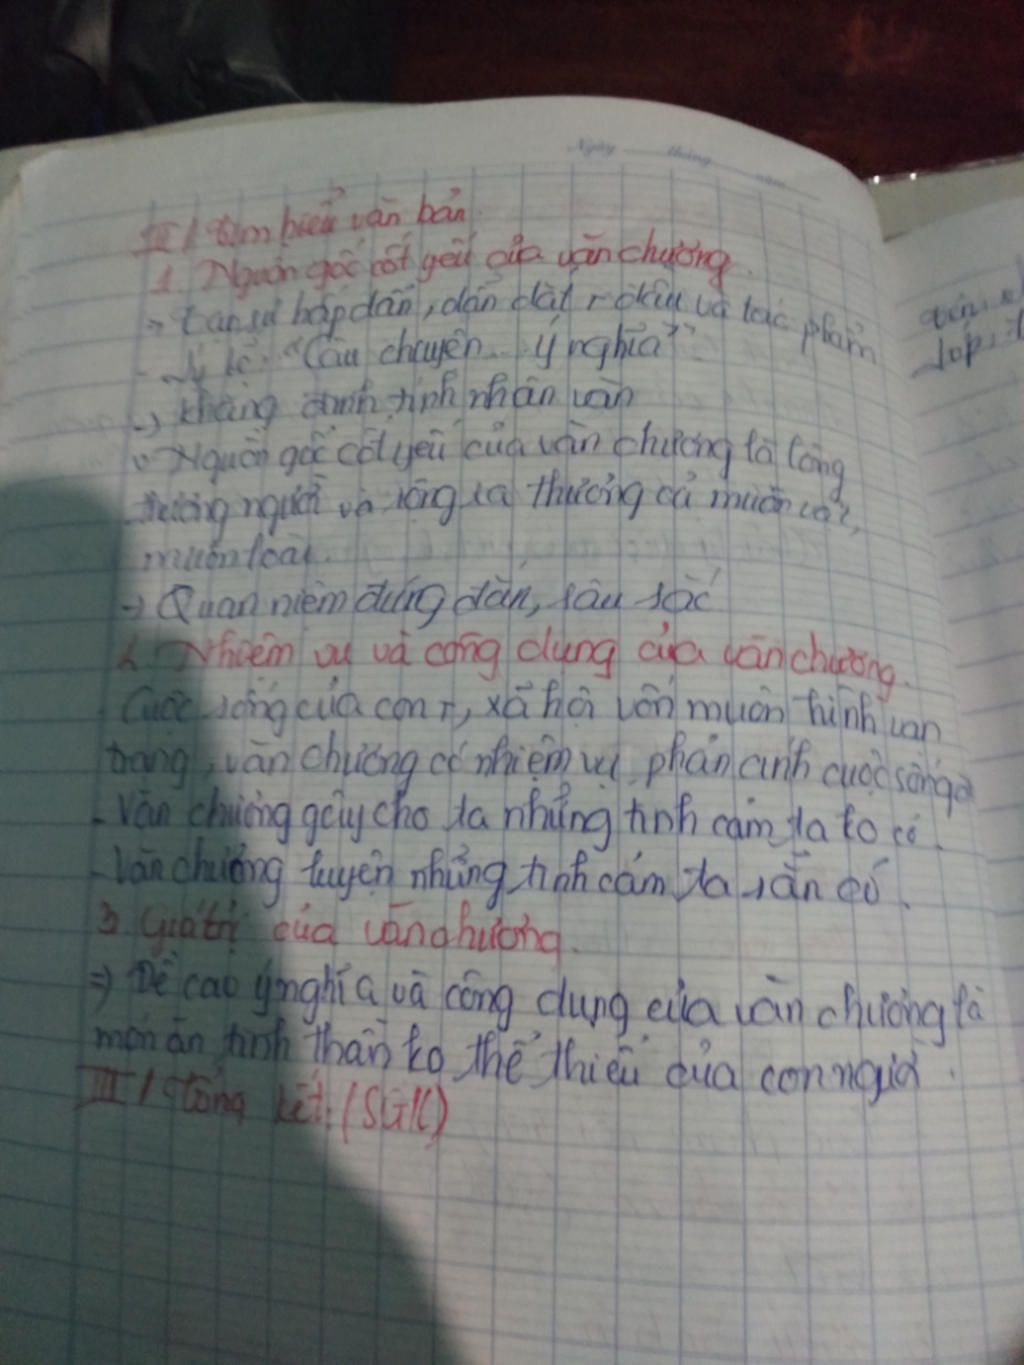 Ngày tháng năm
II/ Tìm hiểu văn bản
1. Nguồn gốc cốt yếu của văn chương.
→ tạo sự hấp dẫn, dẫn dắt và tác phẩm
- Lý lẽ: "Câu chuyện... ý nghĩa"
→ khẳng định tính nhân văn
Nguồn gốc cốt yếu của văn chương là lòng
thương người và rộng ra thương cả muôn vật,
muôn loài.
→ Quan niệm đúng đắn, sâu sắc
2. Nhiệm vụ và công dụng của văn chương.
Cuộc sống của con r, xã hội vốn muôn hình vạn
trạng, văn chương có nhiệm vụ phản ánh cuộc sống
- Văn chương gây cho ta những tình cảm ta ko có.
- Văn chương luyện những tình cảm ta sẵn có.
3. Giá trị của văn chương.
⇒ Đề cao ý nghĩa và công dụng của văn chương là
món ăn tinh thần ko thể thiếu của con người.
III/ Tổng kết: (SGK)